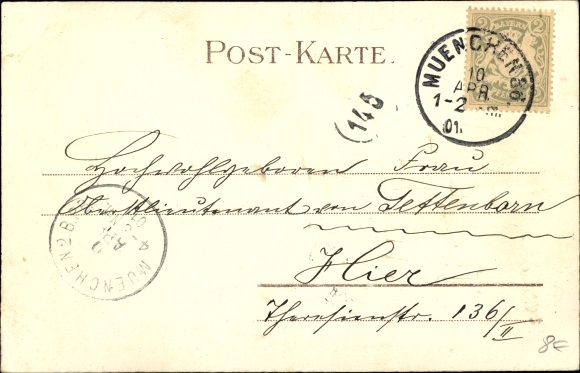 POST-KARTE.
2 BAYERN 2
MUENCHEN
10
APR
1-2
01.
(145)
Hochwohlgeboren Frau
Oberstlieutenant von Tettenborn
Hier
Theresienstr. 136/II
MUENCHEN 2 B.
APR
8€